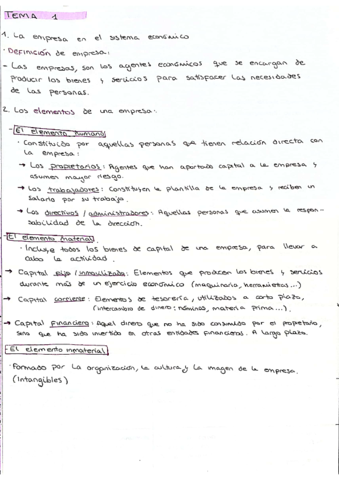 TEMA 1
1. La empresa en el sistema económico
· Definición de empresa:
- Las empresas, son los agentes económicos que se encargan de
producir los bienes y servicios para satisfacer las necesidades
de las personas.
2. Los elementos de una empresa:
- El elemento humano
· Constituido por aquellas personas que tienen relación directa con
la empresa:
→ Los propietarios: Agentes que han aportado capital a la empresa y
asumen mayor riesgo.
→ Los trabajadores: Constituyen la plantilla de la empresa y reciben un
salario por su trabajo.
→ Los directivos / administradores: Aquellas personas que asumen la respon-
sabilidad de la dirección.
- El elemento material
· Incluye todos los bienes de capital de una empresa, para llevar a
cabo la actividad.
→ Capital fijo / inmovilizado: Elementos que producen los bienes y servicios
durante más de un ejercicio económico (maquinaria, herramientas...)
→ Capital corriente: Elementos de tesorería, utilizados a corto plazo,
(intercambio de dinero: nóminas, materia prima...).
→ Capital financiero: Aquel dinero que no ha sido consumido por el propietario,
sino que ha sido invertido en otras entidades financieras. A largo plazo.
- El elemento inmaterial
· Formado por la organización, la cultura y la imagen de la empresa.
(Intangibles)